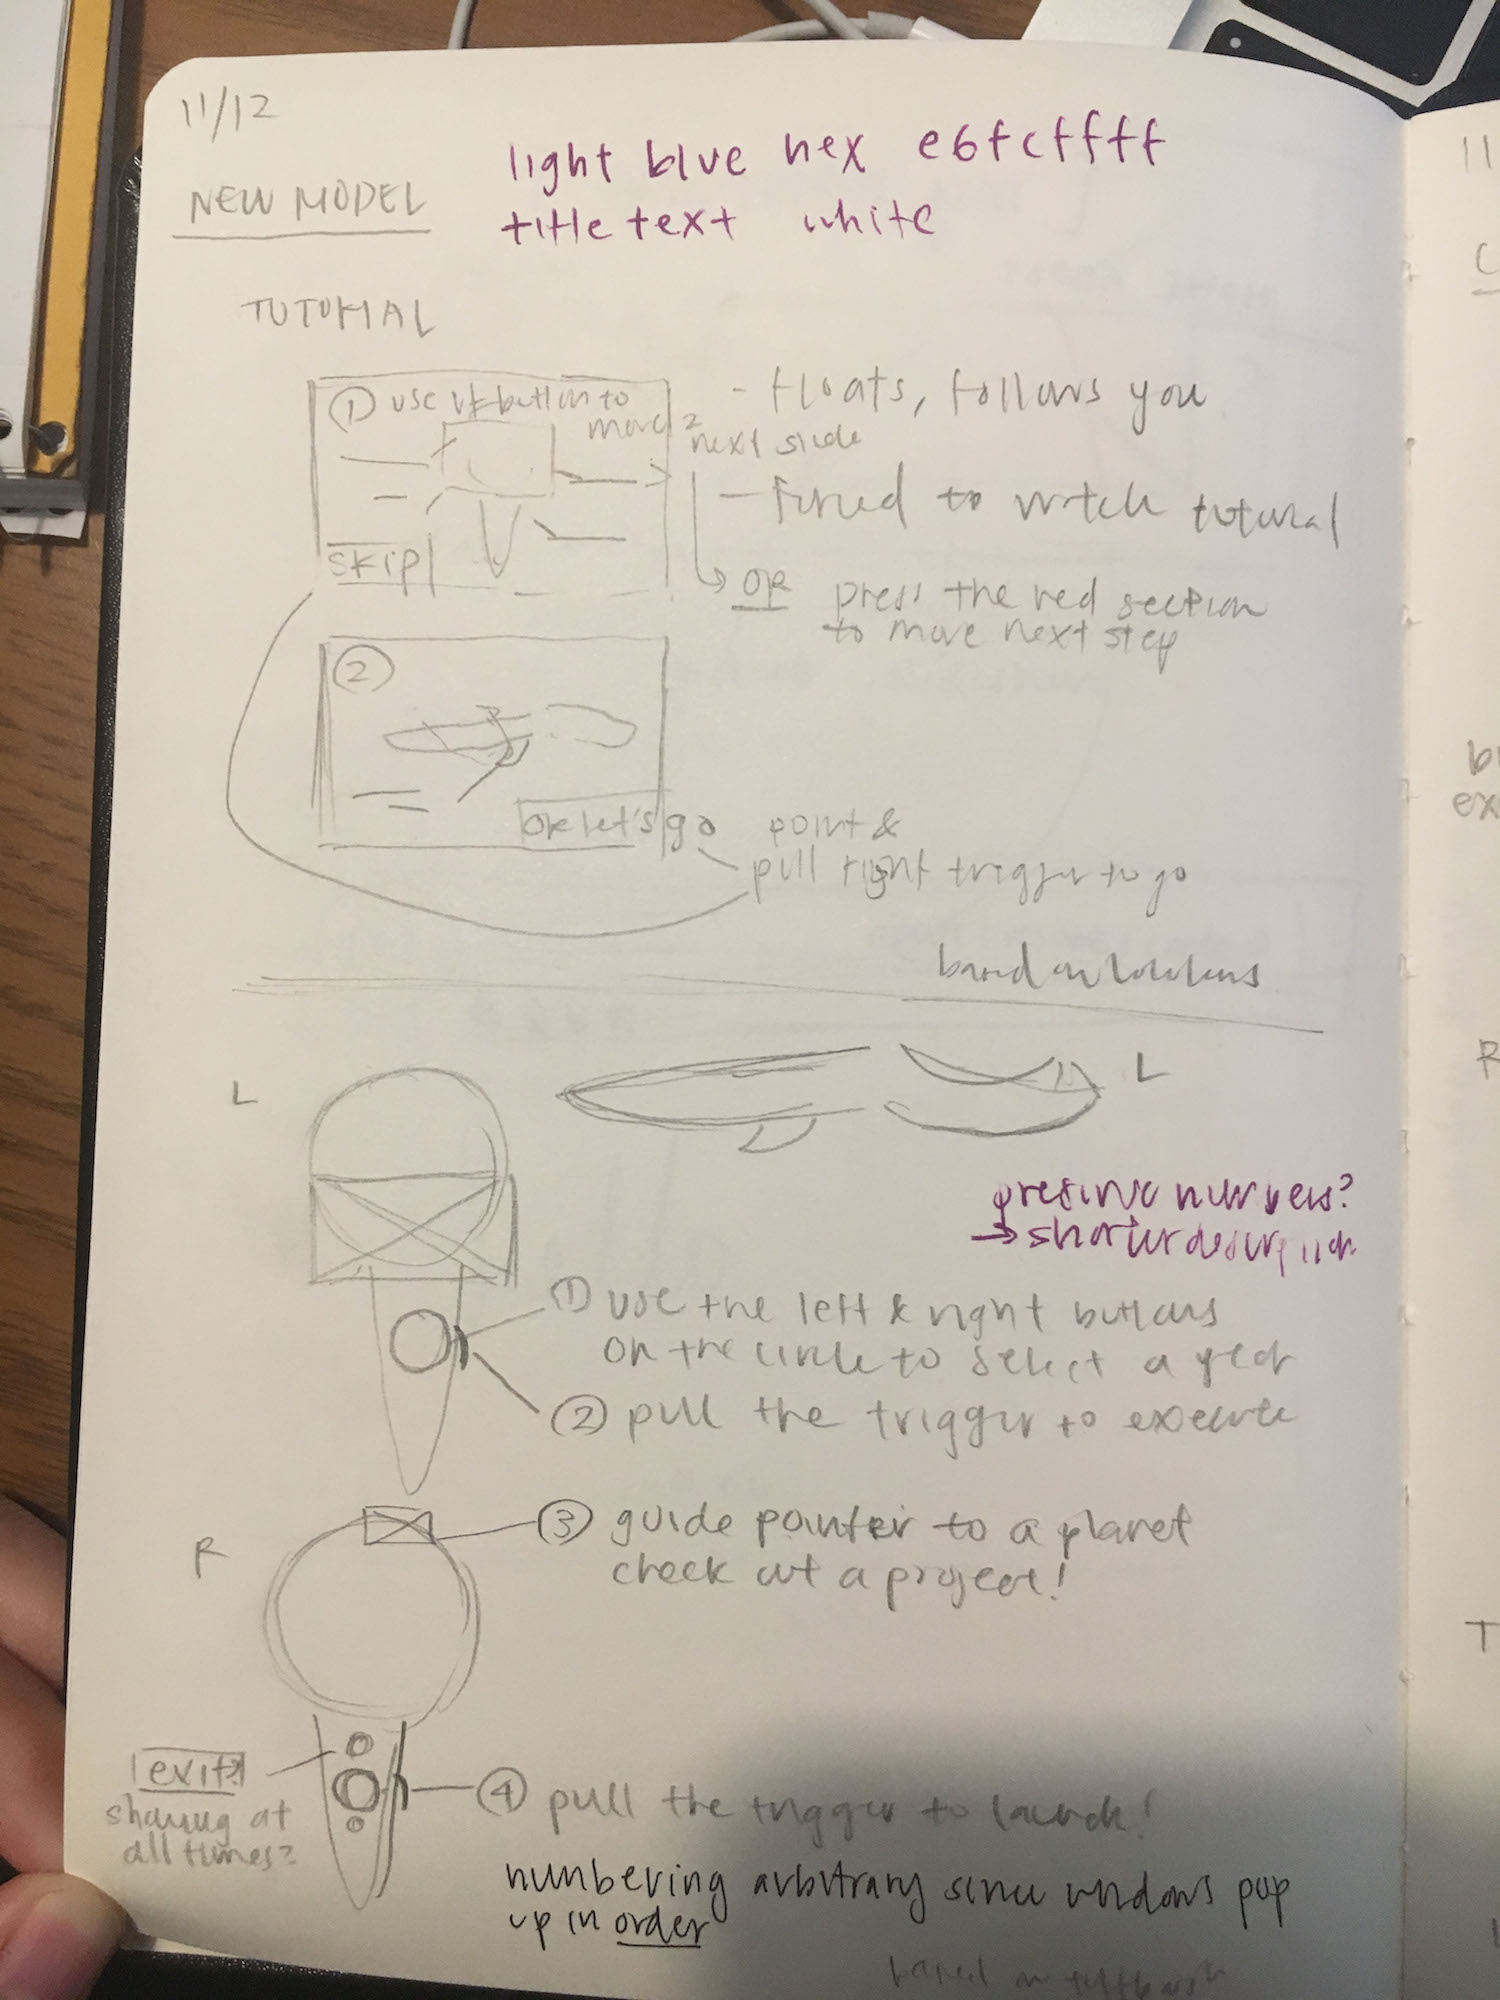 11/12
NEW MODEL
light blue hex e6fcffff
title text white
TUTORIAL
① use button to
move 2
next slide
SKIP
- floats, follows you
- forced to watch tutorial
OR press the red section
to move next step
②
OK let's go
point &
pull right trigger to go
based on hololens
L
L
preserve numbers?
→ shorter description
① use the left & right buttons
on the circle to select a year
② pull the trigger to execute
R
③ guide pointer to a planet
check out a project!
exit?
showing at
all times?
④ pull the trigger to launch!
numbering arbitrary since windows pop
up in order
based on
11
bu
ex
R
T